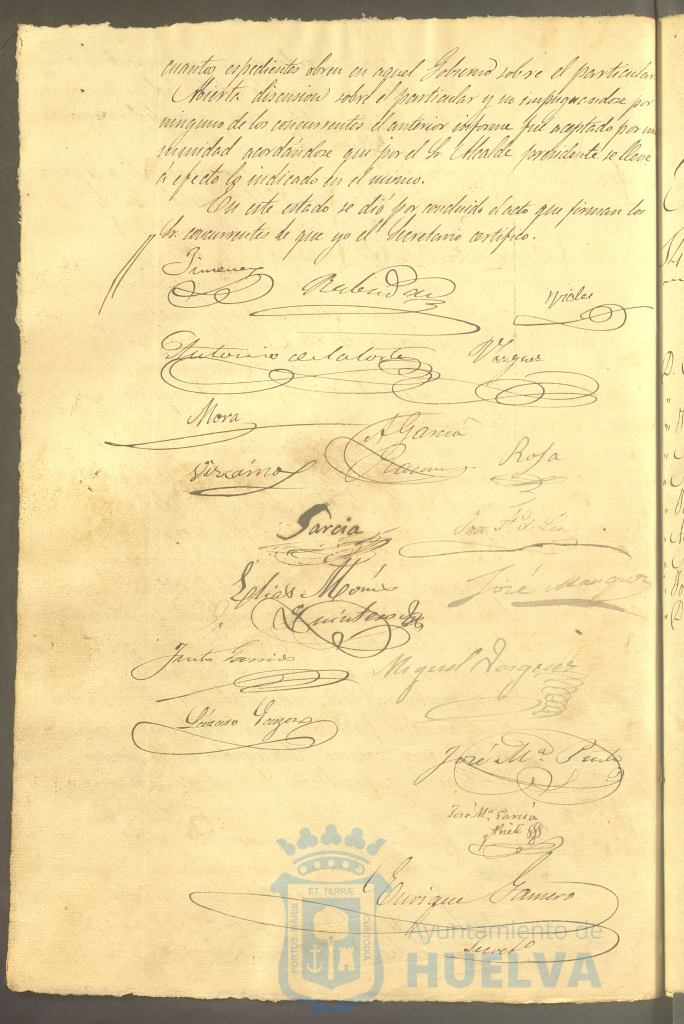 cuantos espedientes obren en aquel Gobierno sobre el particular.
Abierta discusion sobre el particular y no impugnandose por
ninguno de los concurrentes el anterior informe fue aceptado por una
nimidad acordándose que por el Sr. Alcalde presidente se lleve
a efecto lo indicado en el mismo.
En este estado se dió por concluido el acto que firman los
Sr. concurrentes de que yo el Secretario certifico.
Jimenez
Antonio de la Corte Vazquez
Mora
A Garcia
Vizcaino Rosa
Garcia
Elias Moni
Quintero
José Marquez
Justo Garrido
Miguel Vazquez
Lázaro Garzon
José Mª
José Mª Garcia
y Prieto
Enrique Gamero
Secretº
PORTUS MARIS ET TERRÆ CUSTODIA
Ayuntamiento de
HUELVA